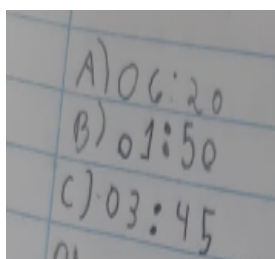 A) 06:20
B) 01:50
C) 03:45